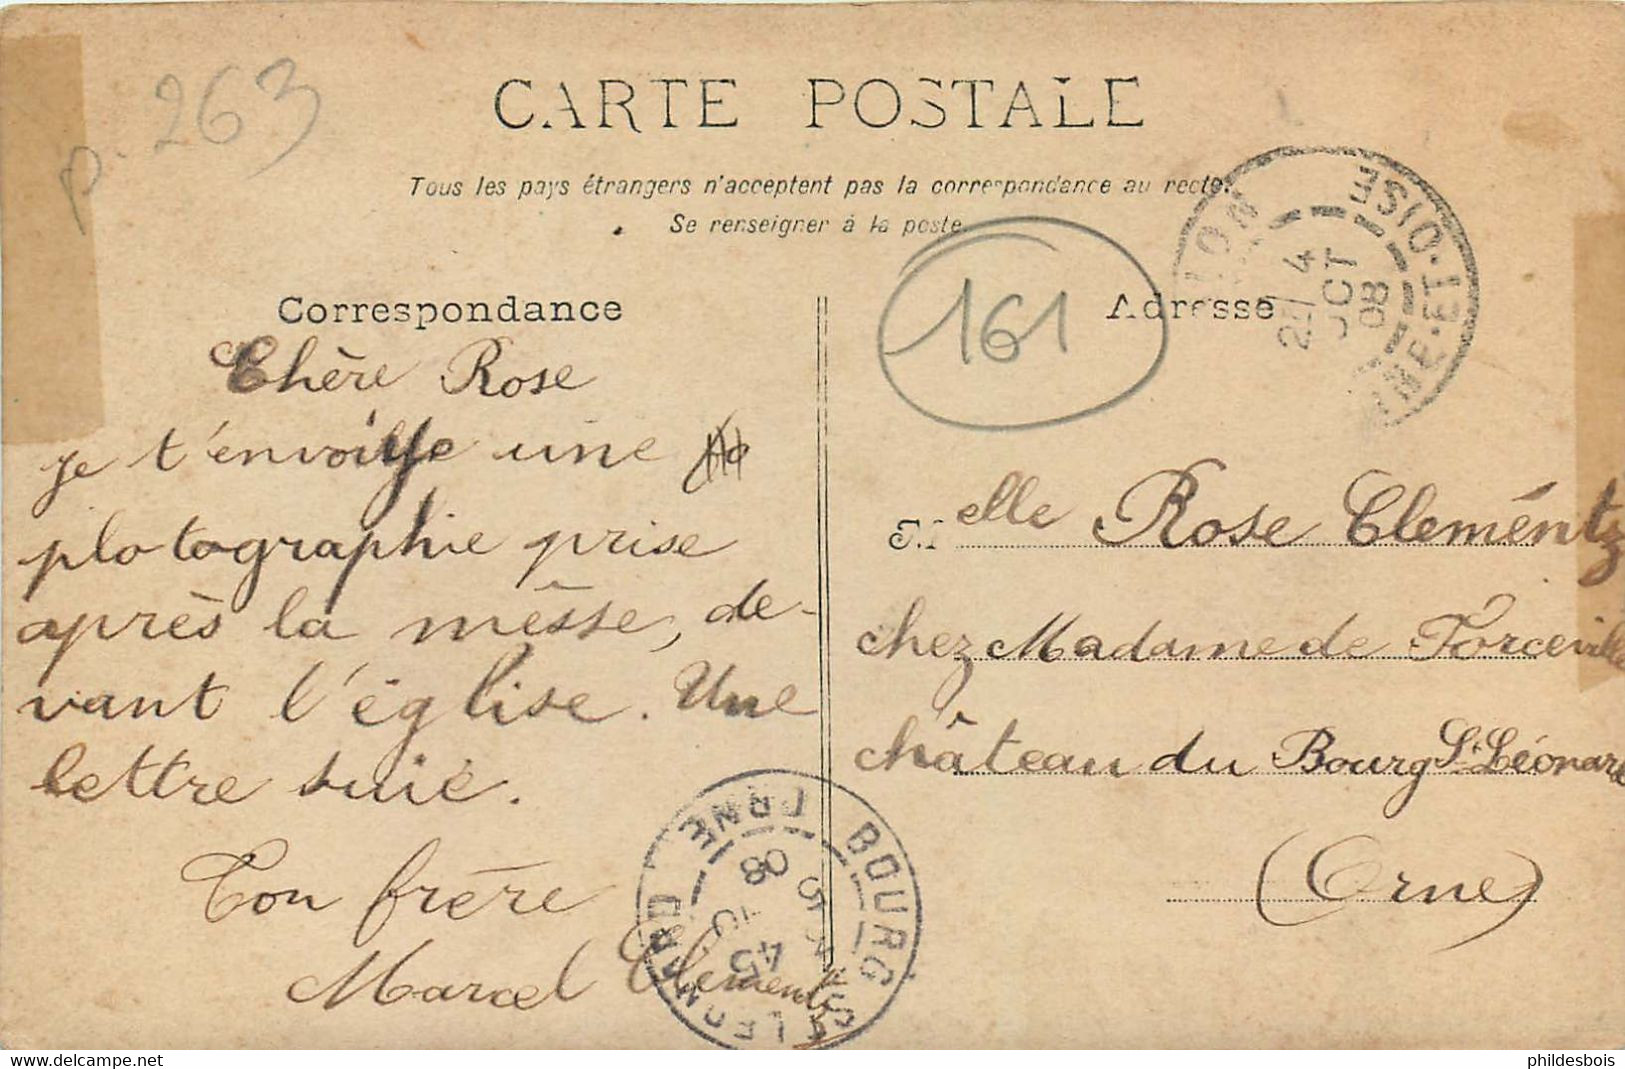 p. 263
CARTE POSTALE
Tous les pays étrangers n'acceptent pas la correspondance au recto.
Se renseigner à la poste.
161
Correspondance
Chère Rose
je t'envoiye une
plotographie prise
après la mêsse, de-
vant l'église. Une
lettre suie.
Ton frère
Marcel Clementz
Adresse
Melle Rose Cleméntz
chez Madame de Forceville
château du Bourg St Léonard
(Orne)
24 OCT 08
NE-ET-OISE
BOURG ST LEONARD ORNE
5 08
phildesbois